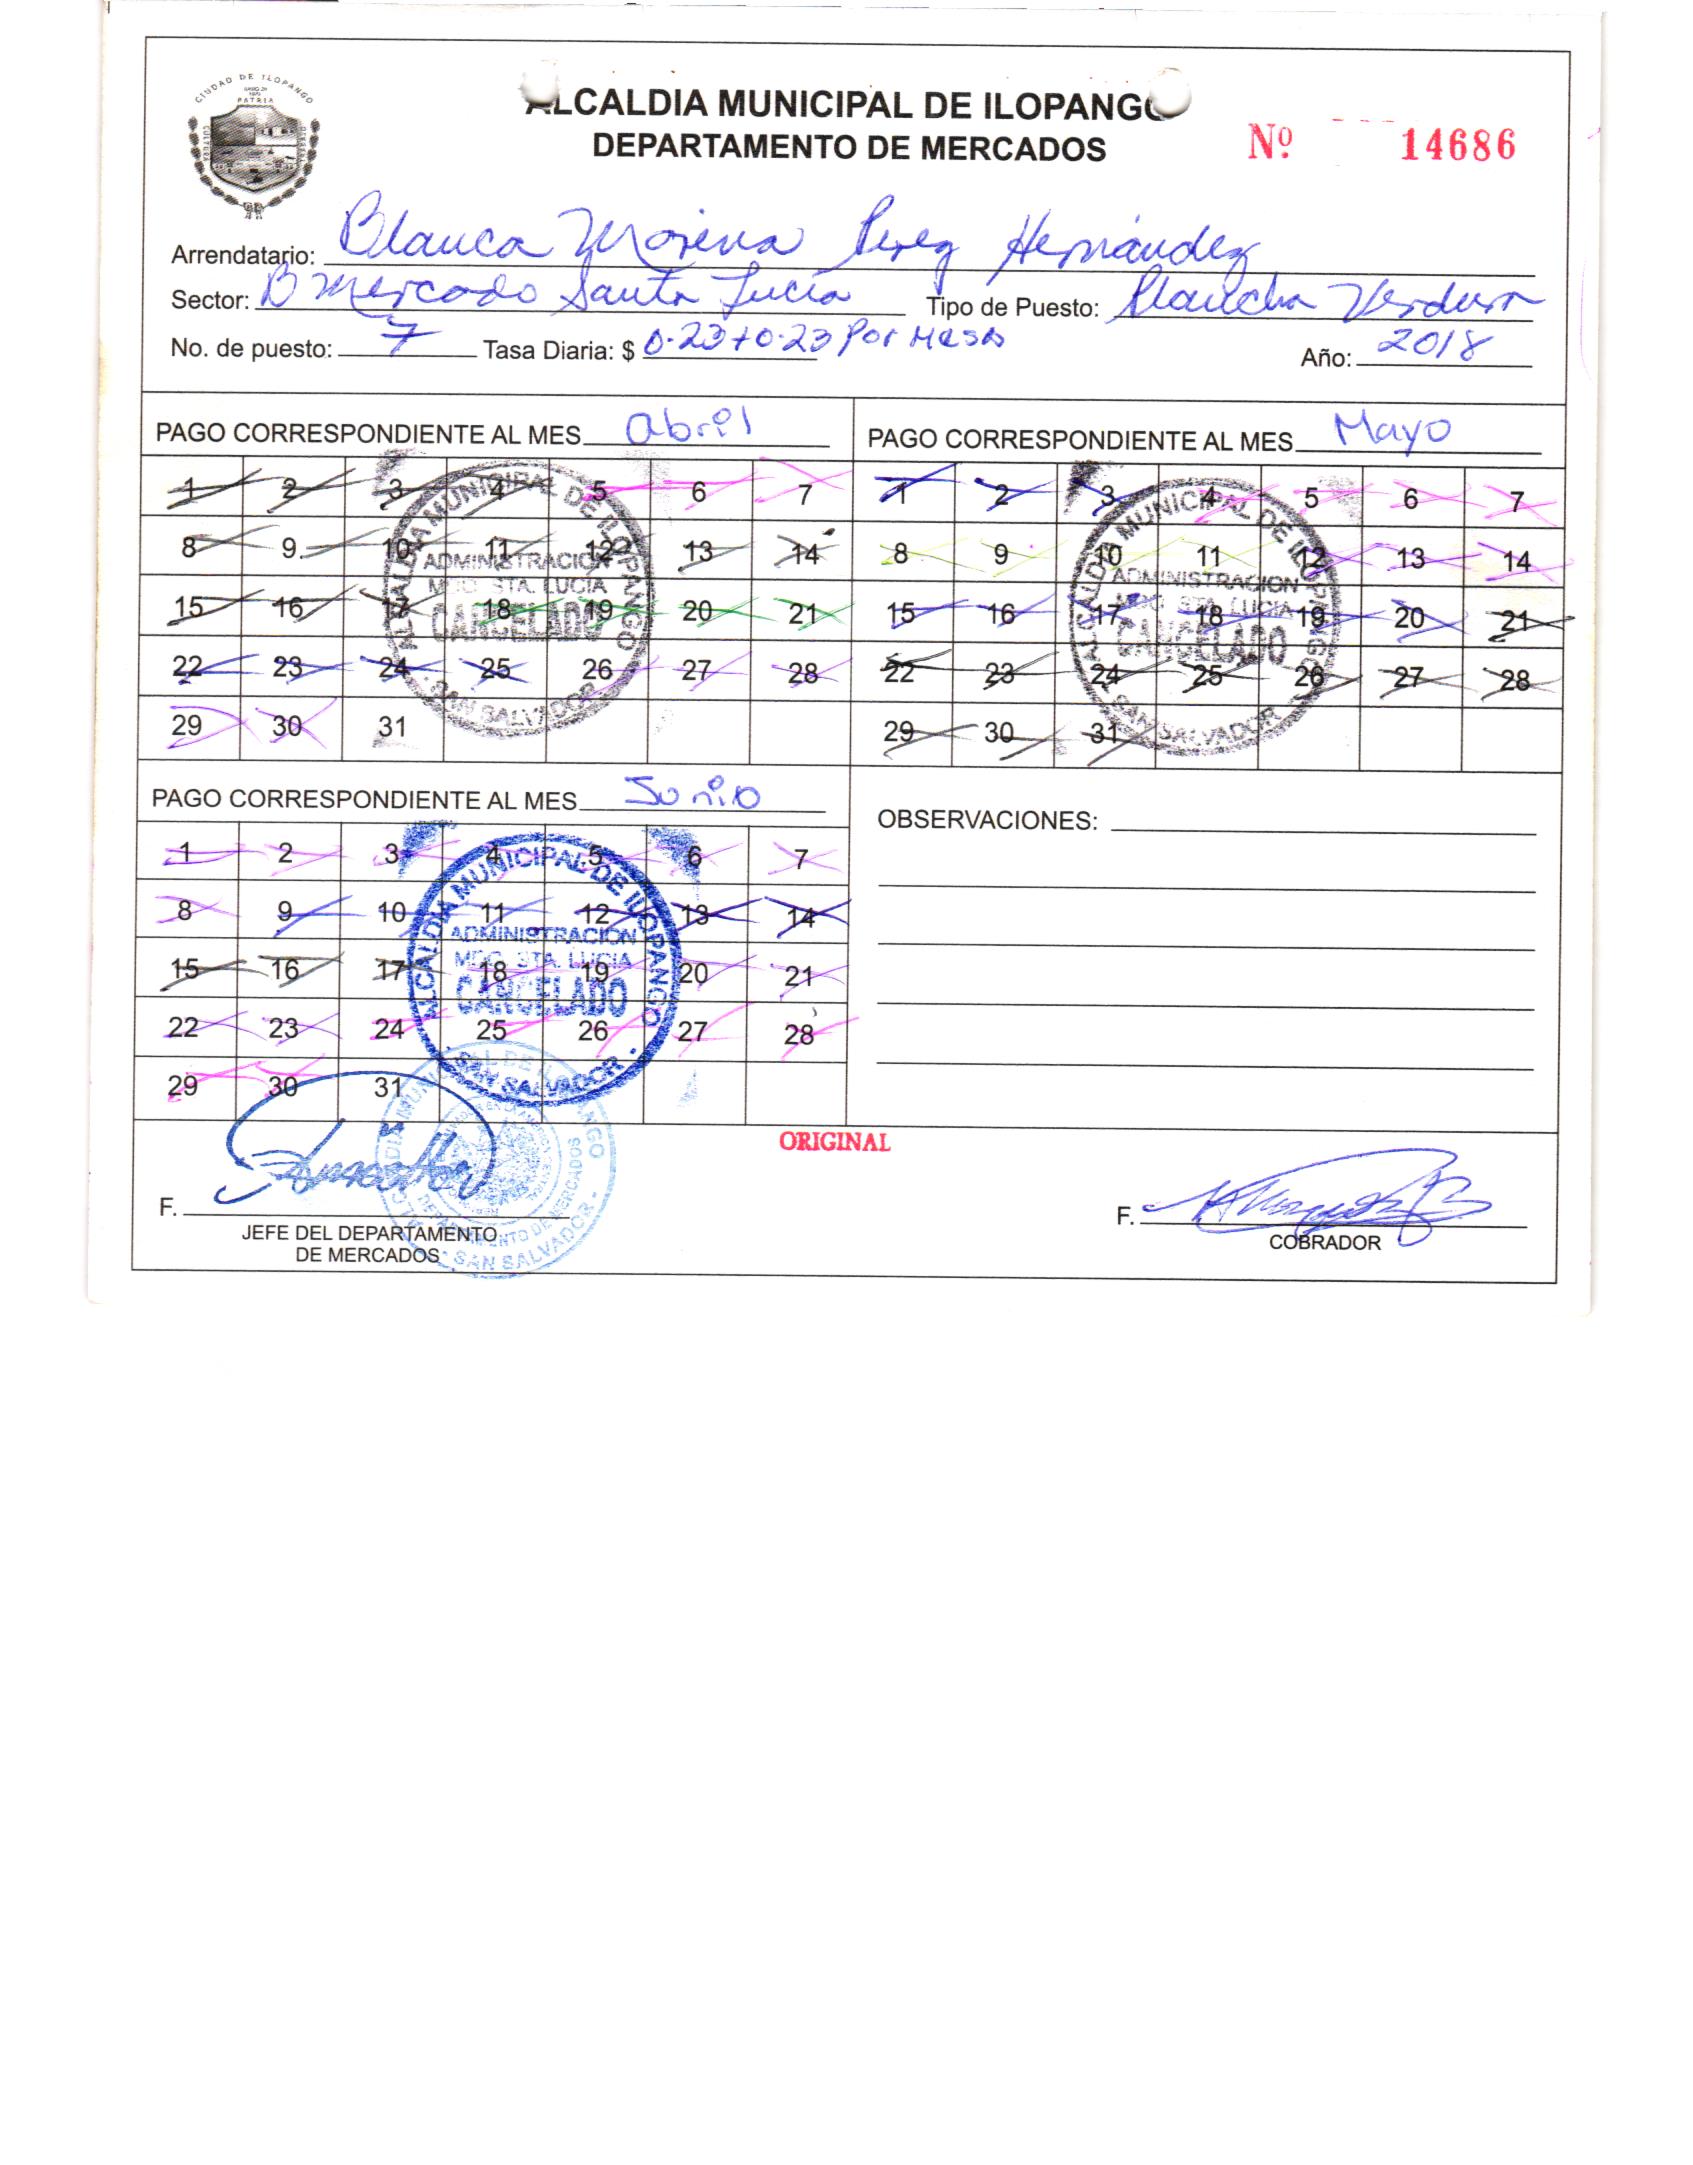 CIUDAD DE ILOPANGO
PATRIA
CULTURA
ALCALDIA MUNICIPAL DE ILOPANGO
DEPARTAMENTO DE MERCADOS
Nº 14686
Arrendatario: Blanca Morena Perez Hernández
Sector: B Mercado Santa Lucia Tipo de Puesto: Plancha Verdura
No. de puesto: 7 Tasa Diaria: $ 0.23+0.23 Por Mesa Año: 2018
PAGO CORRESPONDIENTE AL MES abril
1 2 3 4 5 6 7
8 9 10 11 12 13 14
15 16 17 18 19 20 21
22 23 24 25 26 27 28
29 30 31
ALCALDIA MUNICIPAL DE ILOPANGO
ADMINISTRACION
MDO. STA. LUCIA
CANCELADO
SAN SALVADOR
PAGO CORRESPONDIENTE AL MES Mayo
1 2 3 4 5 6 7
8 9 10 11 12 13 14
15 16 17 18 19 20 21
22 23 24 25 26 27 28
29 30 31
ALCALDIA MUNICIPAL DE ILOPANGO
ADMINISTRACION
MDO. STA. LUCIA
CANCELADO
SAN SALVADOR
PAGO CORRESPONDIENTE AL MES Junio
1 2 3 4 5 6 7
8 9 10 11 12 13 14
15 16 17 18 19 20 21
22 23 24 25 26 27 28
29 30 31
ALCALDIA MUNICIPAL DE ILOPANGO
ADMINISTRACION
MDO. STA. LUCIA
CANCELADO
SAN SALVADOR
OBSERVACIONES:
ORIGINAL
F.
JEFE DEL DEPARTAMENTO
DE MERCADOS
DEPARTAMENTO DE MERCADOS
SAN SALVADOR
F.
COBRADOR